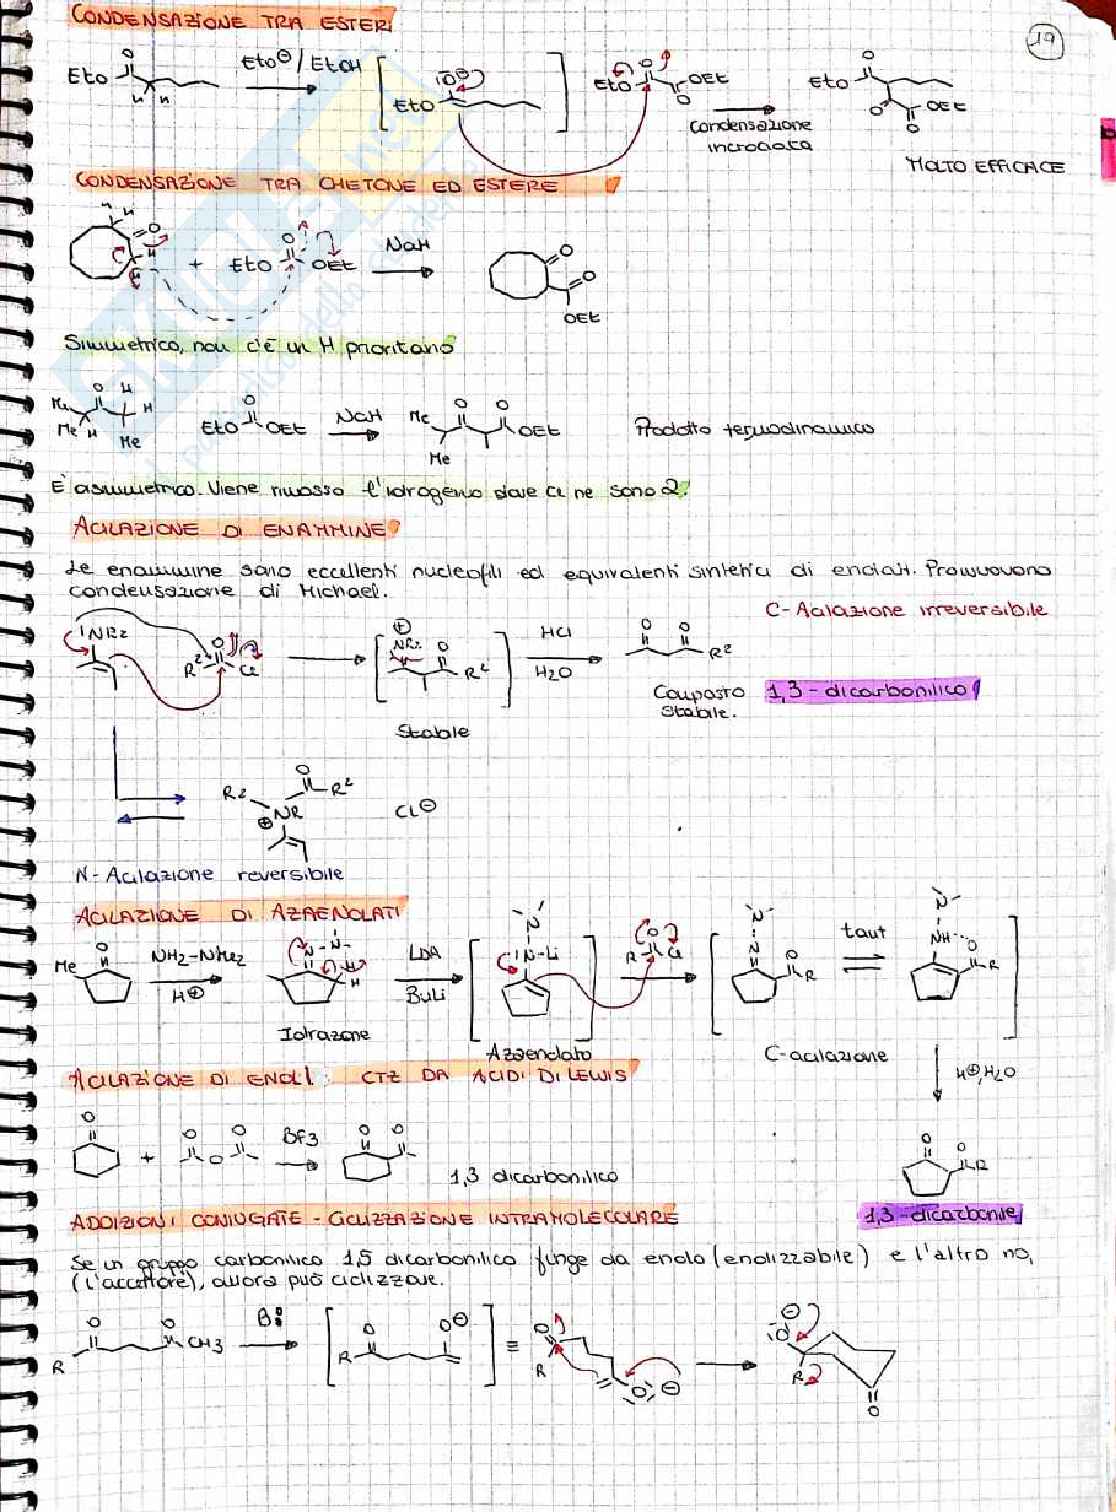 CONDENSAZIONE TRA ESTERI
19
EtO O H H EtO⊖/EtOH EtO EtO O OEt O condensazione incrociata EtO O O OEt O
MOLTO EFFICACE
CONDENSAZIONE TRA CHETONE ED ESTERE
H H O H + EtO O OEt NaH O O OEt
Simmetrico, non c'è un H prioritario
O H H Me Me H Me EtO O OEt NaH Me O O OEt Me Prodotto termodinamico
È asimmetrico. Viene rimosso l'idrogeno dove ce ne sono 2.
ACILAZIONE DI ENAMMINE
Le enammine sono eccellenti nucleofili ed equivalenti sintetici di enolati. Promuovono
condensazione di Michael.
C-Acilazione irreversibile
NR2 R2 O Cl ⊕ NR2 O R2 HCl H2O O O R2
Composto 1,3-dicarbonilico
stabile.
Stabile
R2 O R2 NR ⊕ Cl⊖
N-Acilazione reversibile
ACILAZIONE DI AZAENOLATI
Me O NH2-NMe2 H⊕ N-N- H H LDA BuLi N N-Li R O Cl N N O R taut N NH O R
Idrazone
Azaenolato
C-acilazione
H⊕, H2O
ACILAZIONE DI ENOLI: CTZ DA ACIDI DI LEWIS
O + O O O BF3 O O
1,3 dicarbonilico
O O R
1,3-dicarbonile
ADDIZIONI CONIUGATE - CICLIZZAZIONE INTRAMOLECOLARE
Se un gruppo carbonilico 1,5 dicarbonilico funge da enolo (enolizzabile) e l'altro no,
(l'accettore), allora può ciclizzare.
O O R CH3 B: O O⊖ R ≡ O R O ⊖ ⊖ O R O